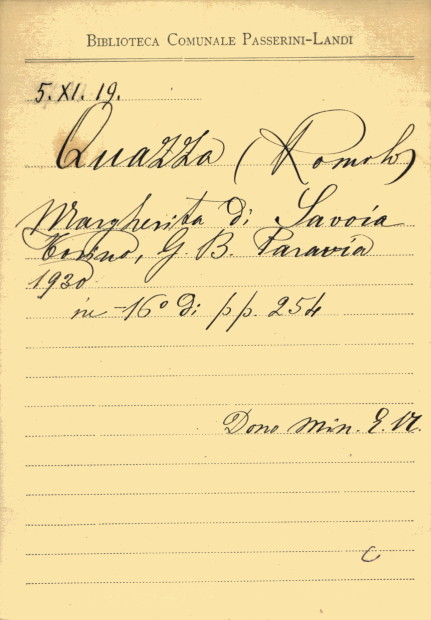 BIBLIOTECA COMUNALE PASSERINI-LANDI
5. XI. 19.
Quazza (Romolo)
Margherita di Savoia
Torino, G. B. Paravia
1930
in-16° di pp. 254
Dono Min. E. N.
C